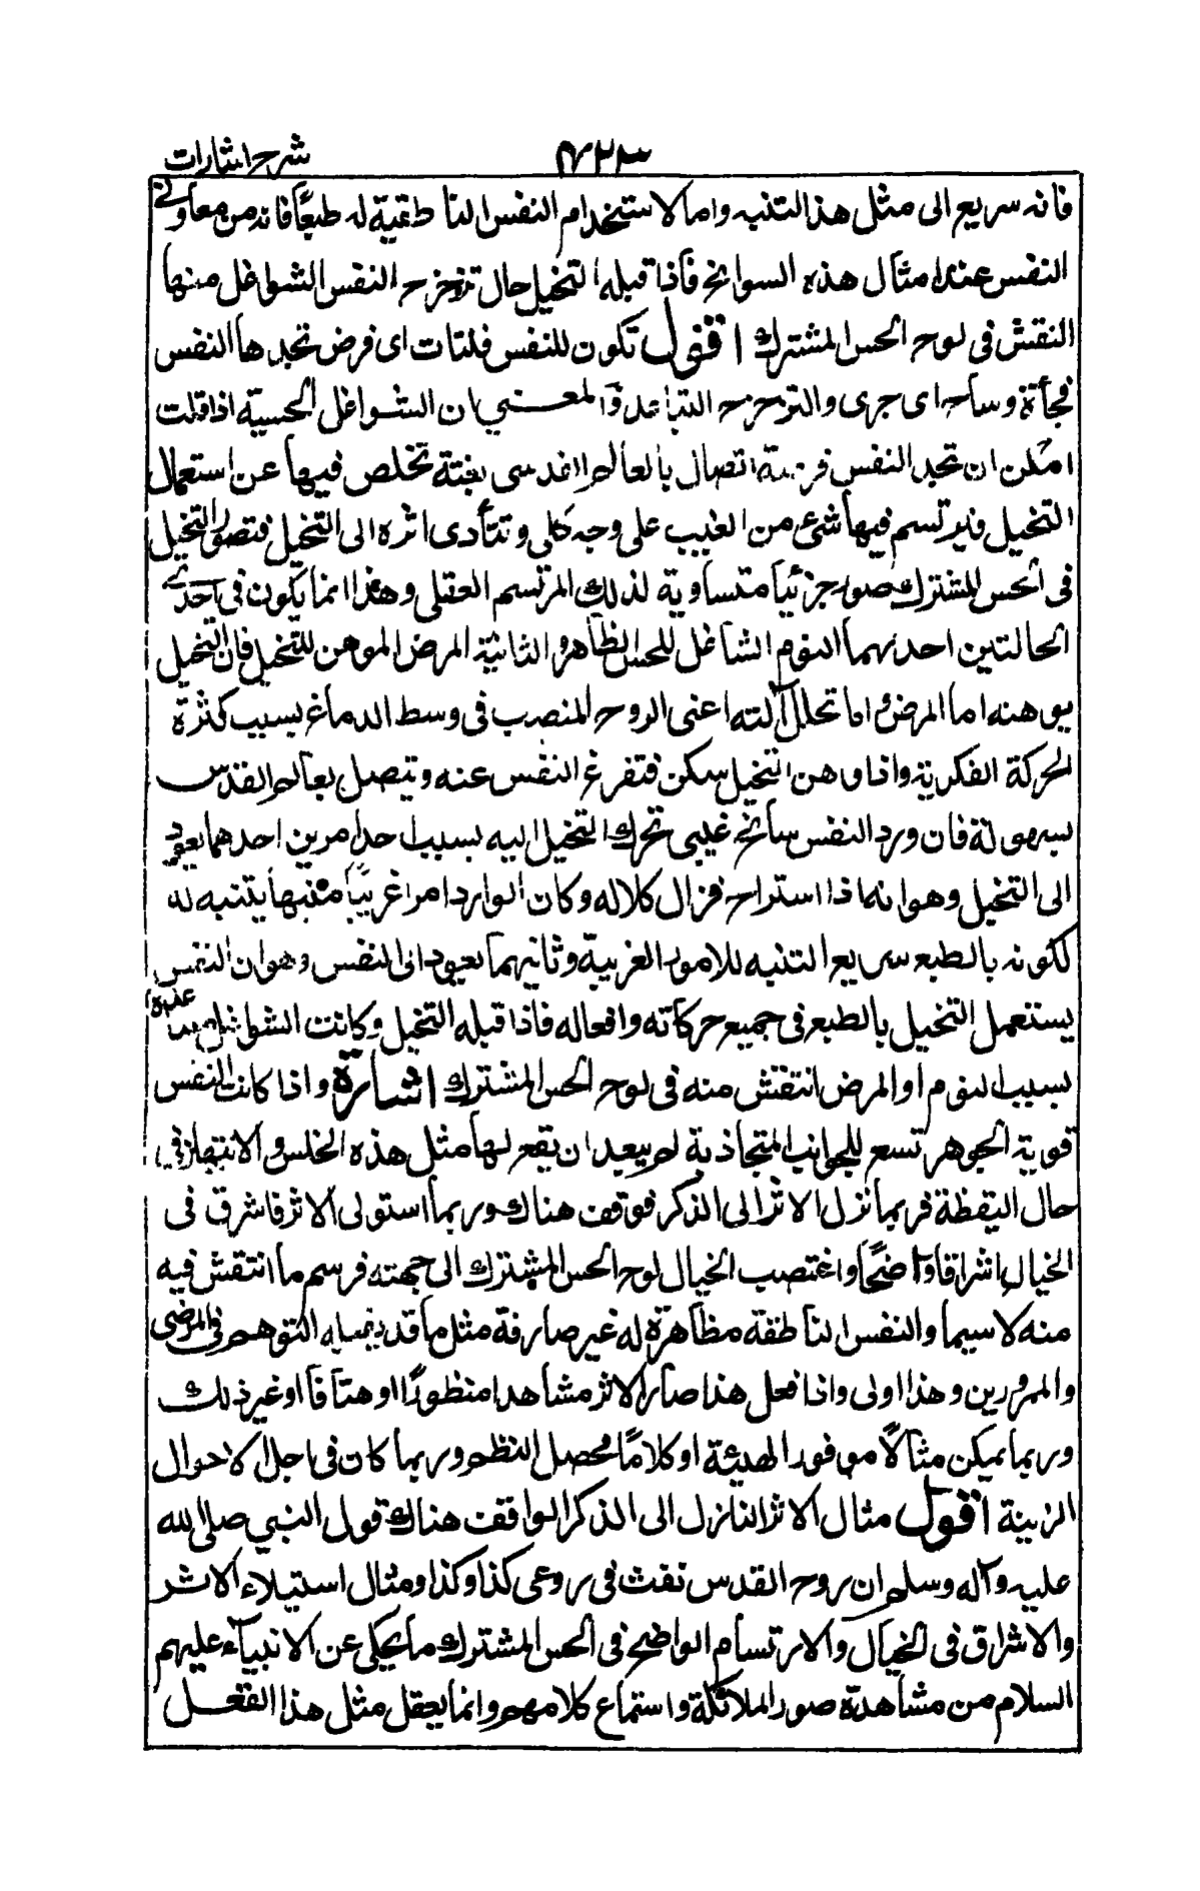 شرح اشارات
٤٢٣
فانه سريع الى مثل هذا التنبه واما لاستخدام النفس الناطقية له طبعًا فانه من معاونى
النفس عند امثال هذه السوانح فاذا قبله التخيل حال تزحزح النفس الشواغل منها
النقش فى لوح الحس المشترك اقول تكون للنفس فلتات اى فرض تجدها النفس
فجأة وساح اى جرى والتزحزح التباعد والمعنى ان الشواغل الحسية اذا قلت
امكن ان تجد النفس فرصة اتصال بالعالم القدسى بغتة تخلص فيها عن استعمال
التخيل فيرتسم فيها شئ من الغيب على وجه كلى وتتأدى اثره الى التخيل فتصور التخيل
فى الحس المشترك صورا جزئيا متساوية لذلك المرتسم العقلى وهذا انما يكون فى احدى
الحالتين احدهما النوم الشاغل للحس الظاهر والثانية المرض الموهن للتخيل فان التخيل
يوهنه اما المرض او اما تحلل آلته اعنى الروح المنصب فى وسط الدماغ بسبب كثرة
الحركة الفكرية واذا وهن التخيل سكن فتفرغ النفس عنه وتتصل بعالم القدس
بسهولة فان ورد النفس سانح غيبى تحرك التخيل اليه بسبب احد امرين احدهما يعود
الى التخيل وهو انه اذا استراح فزال كلاله وكان الوارد امرا غريبًا منبها يتنبه له
لكونه بالطبع سريع التنبه للامور الغريبة وثانيهما يعود الى النفس وهو ان النفس
يستعمل التخيل بالطبع فى جميع حركاته وافعاله فاذا قبله التخيل وكانت الشواغل
بسبب النوم او المرض انتقش منه فى لوح الحس المشترك اشارة واذا كانت النفس
قوية الجوهر تسع للجوانب المتجاذبة لم يبعد ان يقع لها مثل هذه الخلس والانتهاز فى
حال اليقظة فربما نزل الاثر الى الذكر فوقف هناك وربما استولى الاثر فاشرق فى
الخيال اشراقا واضحًا واغتصب الخيال لوح الحس المشترك الى جهته فرسم ما انتقش فيه
منه لا سيما والنفس الناطقة مظاهرة له غير صارفة مثل ما قد يفعله التوهم فى المرضى
والممرورين وهذا اولى واذا فعل هذا صار الاثر مشاهدا منظورًا او هتافًا او غير ذلك
وربما يمكن مثالًا موفور الهيئة او كلامًا محصل النظم وربما كان فى اجل الاحوال
الزينة اقول مثال الاثر النازل الى الذكر الواقف هناك قول النبى صلى الله
عليه وآله وسلم ان روح القدس نفث فى روعى كذا وكذا ومثال استيلاء الاثر
والاشراق فى الخيال والارتسام الواضح فى الحس المشترك ما يحكى عن الانبيآء عليهم
السلام من مشاهدة صور الملائكة واستماع كلامهم وانما يعقل مثل هذا الفعل